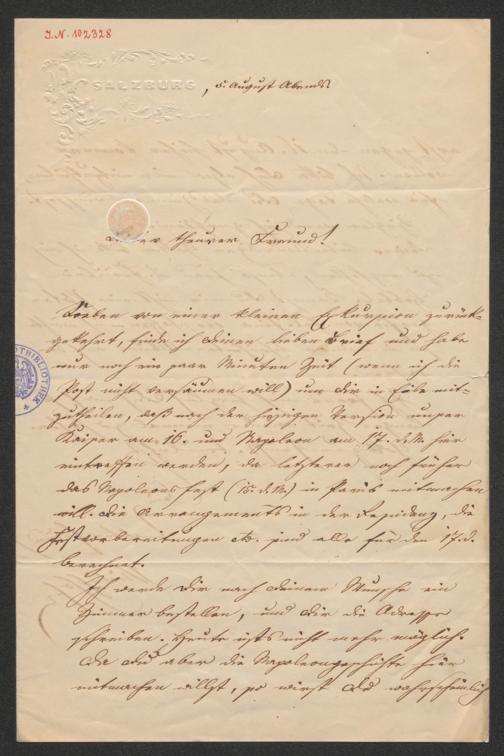 I.N. 102328
SALZBURG , 5. August Abends.
theurer Freund!
Soeben von einer kleinen Exkursion zurück-
gekehrt, finde ich deinen lieben Brief und habe
nur noch ein paar Minuten Zeit (wenn ich die
Post nicht versäumen will) um dir in Eile mit-
zutheilen, daß nach der hiesigen Version unser
Kaiser am 16. und Napoleon am 17. d.M. hier
eintreffen werden, da letzterer noch früher
das Napoleonsfest (15. d.M.) in Paris mitmachen
will. Die Arrangements in der Residenz, die
Festvorbereitungen etc. sind alle für den 17. d.
berechnet.
Ich werde dir nach deinem Wunsche ein
Zimmer bestellen, und dir die Adresse
schreiben. Heute ist's nicht mehr möglich.
Da du aber die Napoleongeschichte hier
mitmachen willst, so wirst du wahrscheinlich